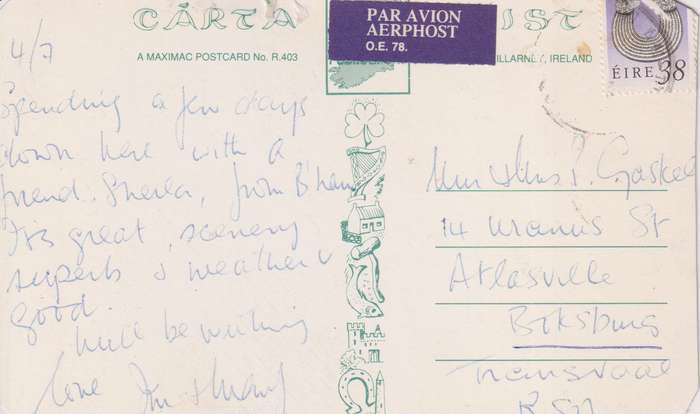 CÁRTA
IST
PAR AVION
AERPHOST
O.E. 78.
ÉIRE 38
A MAXIMAC POSTCARD No. R.403
ILLARNEY, IRELAND
4/7
Spending a few days
down here with a
friend. Sheila, from B'ham
Its great, scenery
superb & weather v
good.
Will be writing
Love
14 Uranus St
Atlasville
Boksburg
Transvaal
RSA